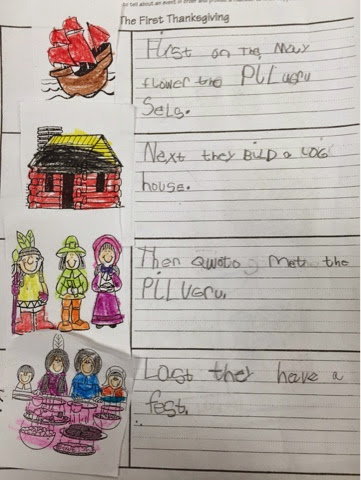 to tell about an event in order and provide a
The First Thanksgiving
First on The May
flower the PILLUGrU
Sela.
Next they BiLD a LOG
house.
Then Quoto Met the
PILUGru.
Last they have a
fest.